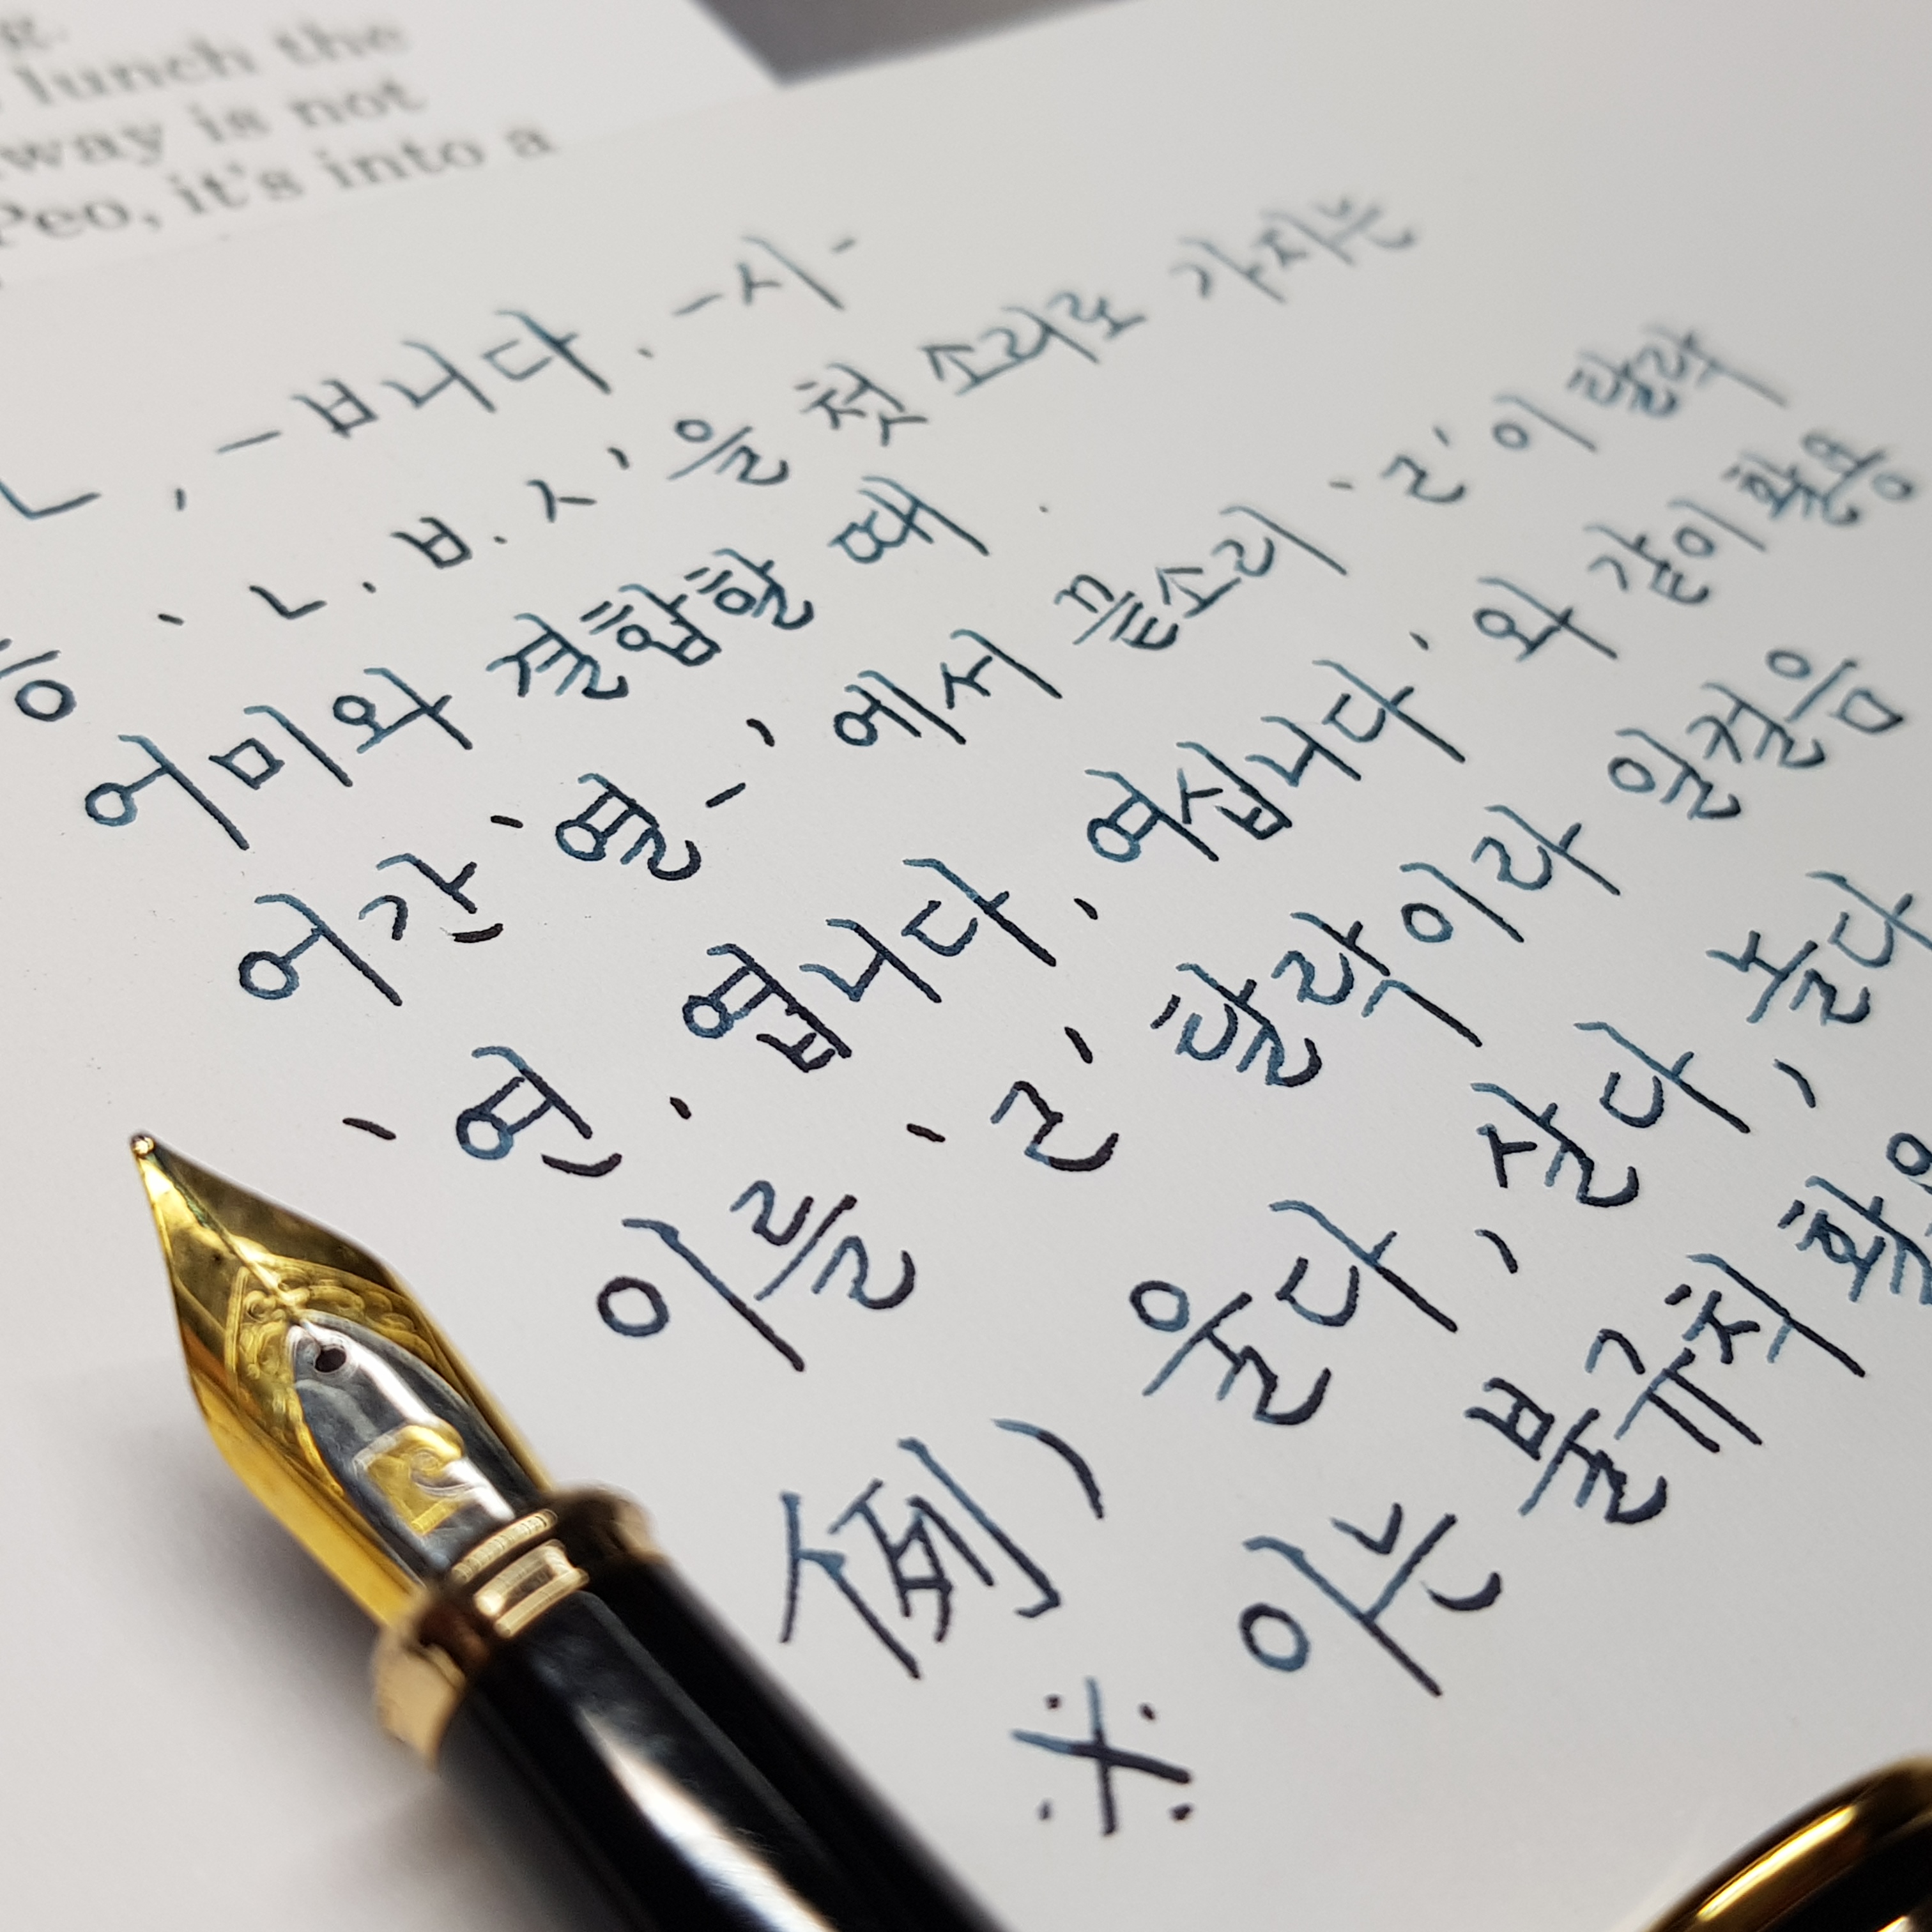 lunch the
way is not
Peo, it's into a
ㄴ, -ㅂ니다. -시-
'ㄴ.ㅂ.ㅅ'을 첫소리로 가지는
어미와 결합할 때.
어간 '열-'에서 끝소리 'ㄹ'이 탈락
'연, 엽니다, 여십니다'와 같이 활용
이를 'ㄹ' 탈락이라 일컬음
例) 울다, 살다, 놀다
※ 이는 불규칙